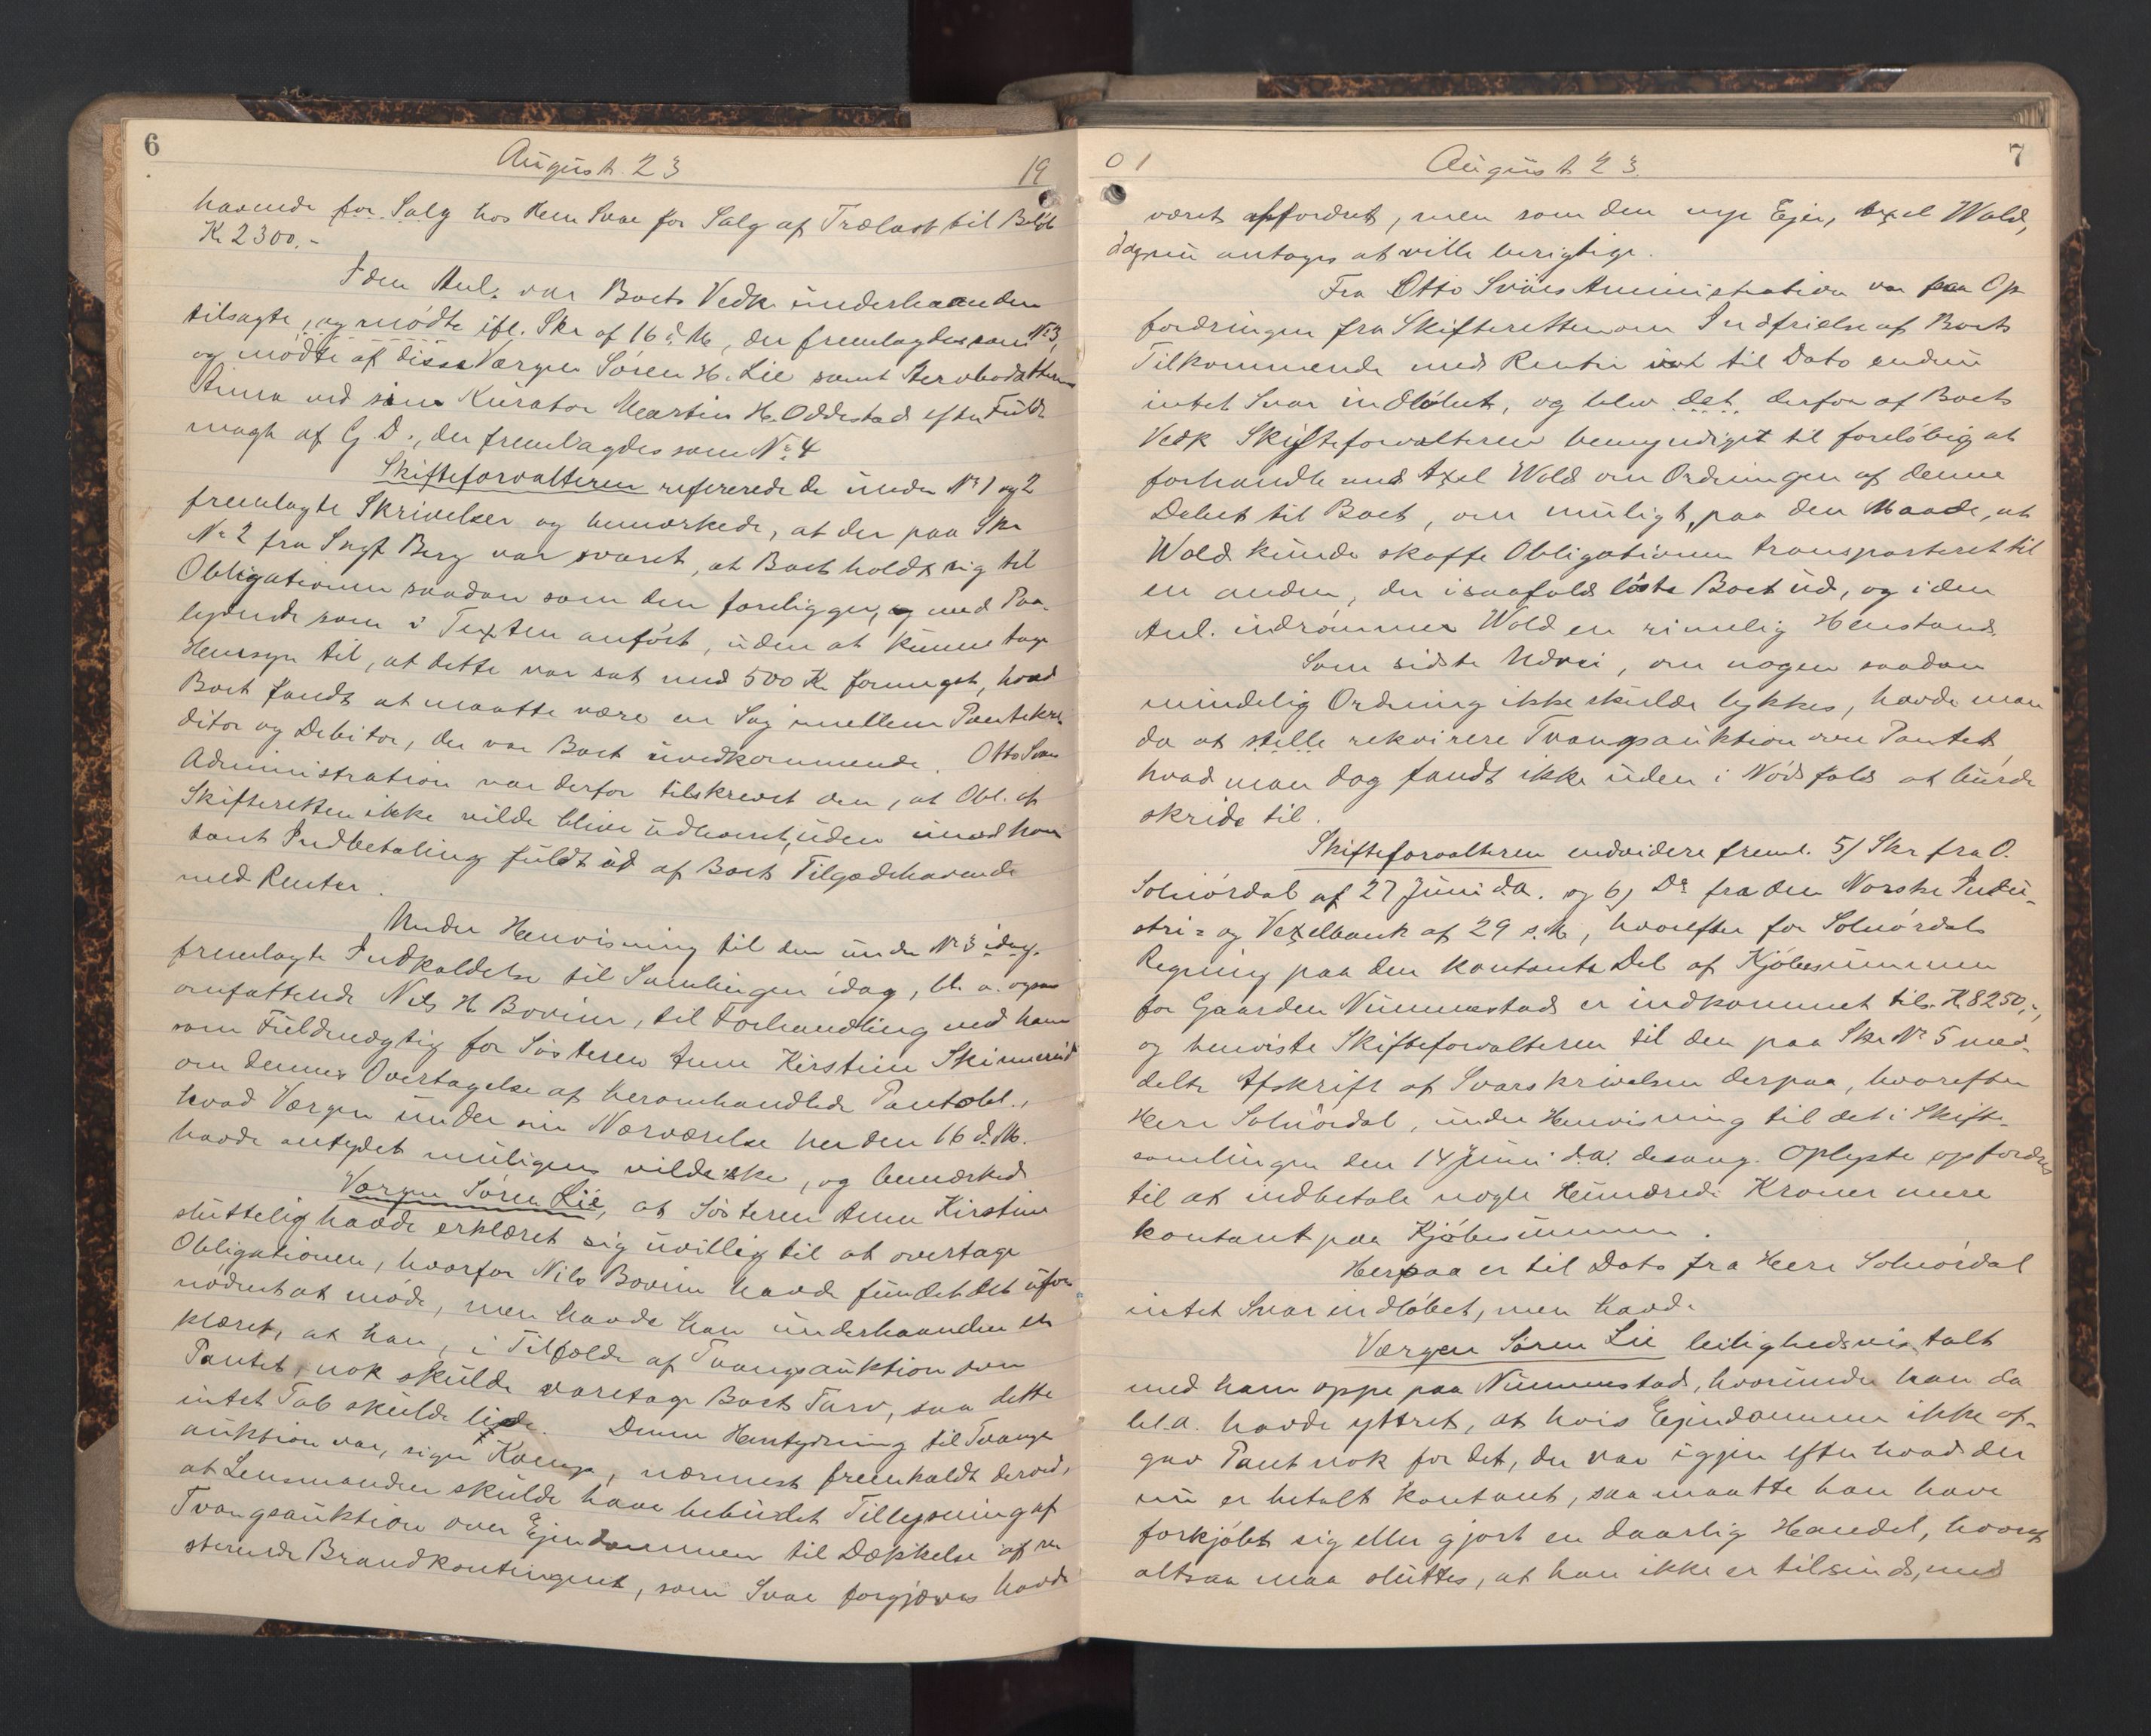 6
August 23
19
havende for Salg hos Herr Svae for Salg af Trælast til Beløb
K. 2300.-
I den Anl. var Boets Vedk underhaanden
tilsagte, og mødte ifl. Skr af 16 d. M, der fremlagdes som No 3,
og mødte af disse Værgen Søren H. Lie samt Sterbodatteren
Anna ved sin Kurator Martin H. Oddestad efter Fuld-
magt af G. D., der fremlagdes som No 4
Skifteforvalteren refererede de under No 1 og 2
fremlagte Skrivelser og bemærkede, at der paa Skr
No 2 fra Sagf Berg var svaret, at Boet holdt sig til
Obligationen saadan som den foreligger, og med Paa-
lydende som i Texten anført, uden at kunne tage
Hensyn til, at dette var sat med 500 Kr formeget, hvad
Boet fandt at maatte være en Sag mellem Pantekre-
ditor og Debitor, der var Boet uvedkommende. Otto Svaes
Administration var derfor tilskrevet om, at Obl. af
Skifteretten ikke vilde blive udleveret, uden imod kon-
tant Indbetaling fuldt ud af Boets Tilgodehavende
med Renter.
Under Henvisning til den under No 3 idag
fremlagte Indkaldelse til Samlingen idag, bl. a. ogsaa
omfattende Nils H Bovim, til Forhandling med ham
som Fuldmægtig for Søsteren Anne Kirstine Skinnerud
om dennes Overtagelse af heromhandlede Pantobl.,
hvad Værgen under sin Nærværelse her den 16 d. M.
havde antydet muligens vilde ske, og bemærkede
Værgen Søren Lie, at Søsteren Anne Kirstine
sluttelig havde erklæret sig uvillig til at overtage
Obligationen, hvorfor Nils Bovim havde fundet det ufor-
nødent at møde, men havde han underhaanden er-
klæret, at han, i Tilfælde af Tvangsauktion over
Pantet, nok skulde varetage Boets Tarv, saa dette
intet Tab skulde lide. Denne Hentydning til Tvangs-
auktion var, siger Komp, nærmest fremkaldt derved,
at Lensmanden skulde have bebudet Tillysning af
Tvangsauktion over Ejendommen til Dækkelse af re-
sterende Brandkontingent, som Svae forgjæves havde
01
August 23.
7
været affordret, men som den nye Ejer, Axel Wold,
dog nu antages at ville berigtige.
Fra Otto Svaes Administration var paa Op-
fordringen fra Skifteretten om Indfrielse af Boets
Tilkommende med Renter til Dato endnu
intet Svar indløbet, og blev det derfor af Boets
Vedk Skifteforvalteren bemyndiget til foreløbig at
forhandle med Axel Wold om Ordningen af denne
Debet til Boet, om muligt, paa den Maade, at
Wold kunde skaffe Obligationen transporteret til
en anden, der isaafald løste Boet ud, og i den
Anl. indrømmes Wold en rimelig Henstand.
Som sidste Udvei, om nogen saadan
mindelig Ordning ikke skulde lykkes, havde man
da at stelle rekvirere Tvangsauktion over Pantet,
hvad man dog fandt ikke uden i Nødsfald at burde
skride til.
Skifteforvalteren endvidere freml. 5/ Skr fra O.
Solnørdal af 27 Juni d.A. og 6/ Do fra den Norske Indu-
stri- og Vexelbank af 29 s.M, hvorefter for Solnørdals
Regning paa den kontante Del af Kjøbesummen
for Gaarden Nummestad er indkommet tils. K 8250,-,
og henviste Skifteforvalteren til den paa Skr No 5 med-
delte Afskrift af Svarskrivelsen derpaa, hvorefter
Herr Solnørdal, under Henvisning til det i Skifte-
samlingen den 14 Juni d.A. desang. Oplyste opfordres
til at indbetale nogle Hundrede Kroner mere
kontant paa Kjøbesummen.
Herpaa er til Dato fra Herr Solnørdal
intet Svar indløbet, men havde
Værgen Søren Lie leilighedsvis talt
med ham oppe paa Nummestad, hvorunder han da
bl.a. havde yttret, at hvis Ejendommen ikke af-
gav Pant nok for det, der var igjen efter hvad der
nu er betalt kontant, saa maatte han have
forkjøbt sig eller gjort en daarlig Handel, hvoraf
altsaa maa sluttes, at han ikke er tilsinds, med